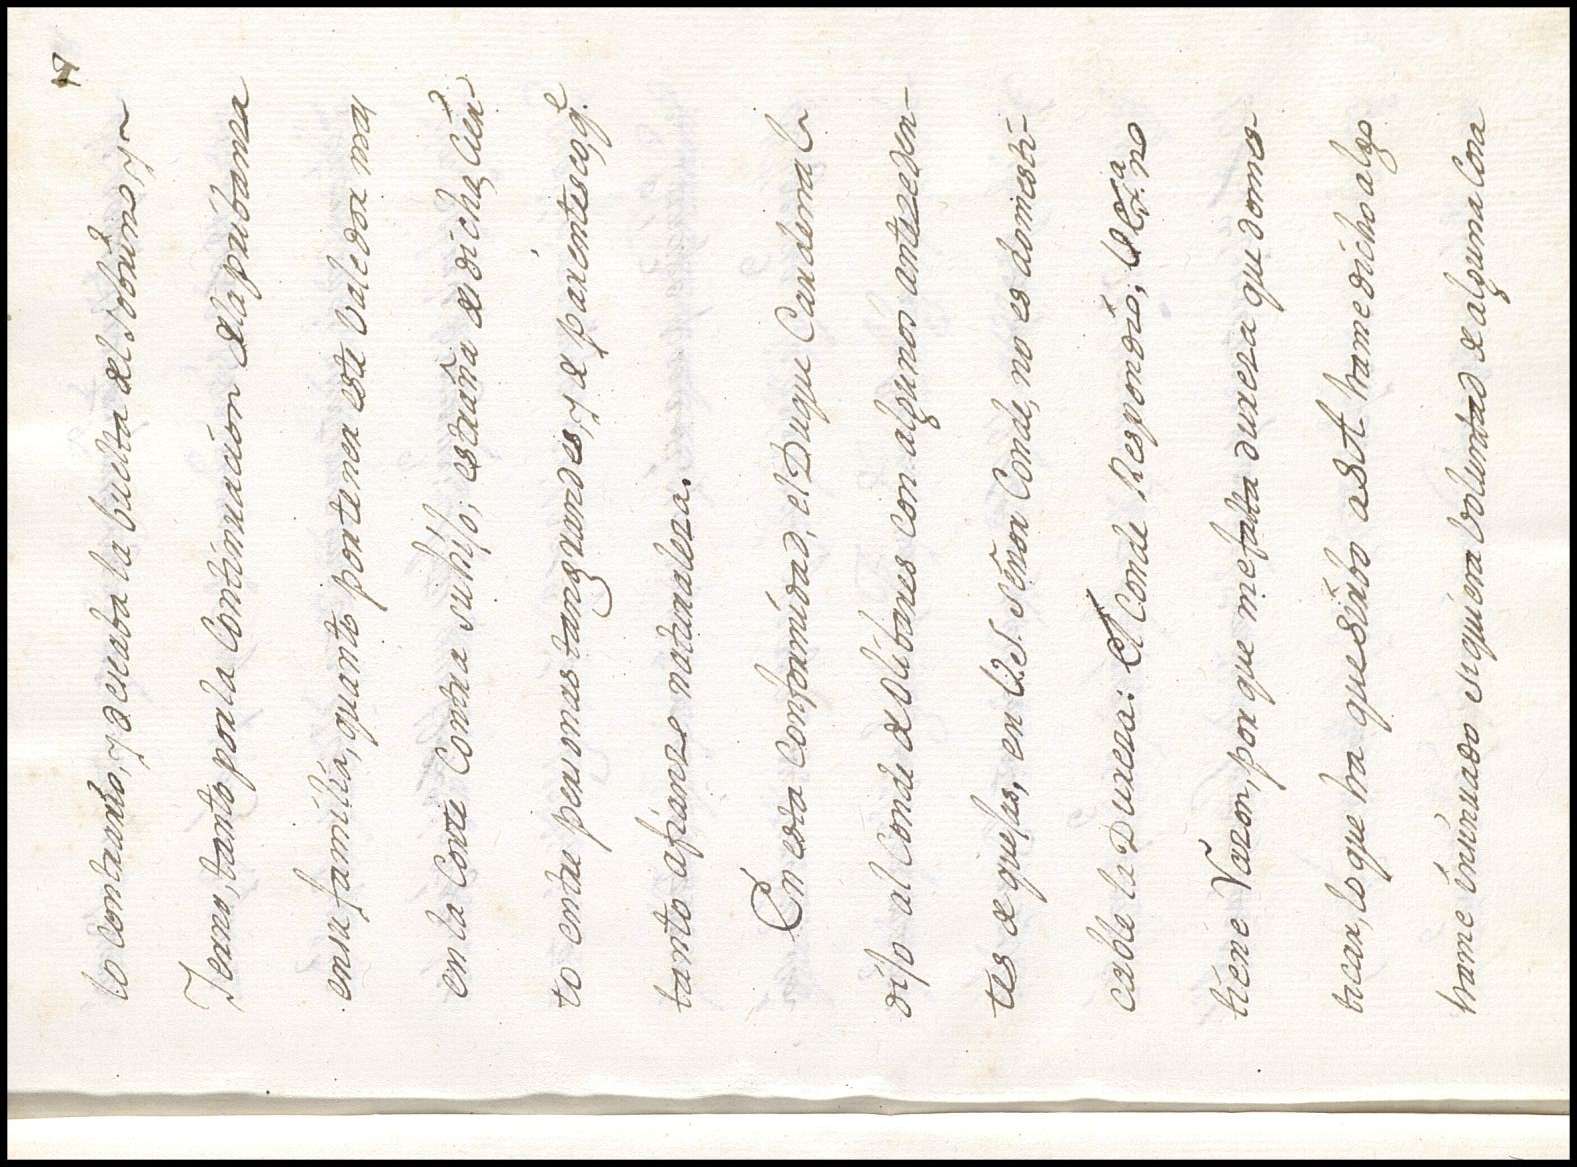 lo contrario, y deseaba la buelta del sobrino, y
Yerno, tanto por la Continuacion de la pribanza
en su familia, quanto por tener este baledor mas
en la Corte Contra su hijo; estraña desdicha, Cier-
to entre personas tan grandes, y de parentesco, q.e
tanto afianza naturaleza.
En esta Conformidad, el Duque Cardenal
dijo al Conde de Olibares con algunos anteceden-
tes de quejas, en V.E. Señor Conde, no es domesti-
cable la Dureza: El Conde Respondio; V. Em.a no
tiene Razon, porque me falta dureza que domes-
ticar, lo que ha que Sirbo a S A hame dicho algo
hame insinuado siquiera boluntad de alguna Cosa